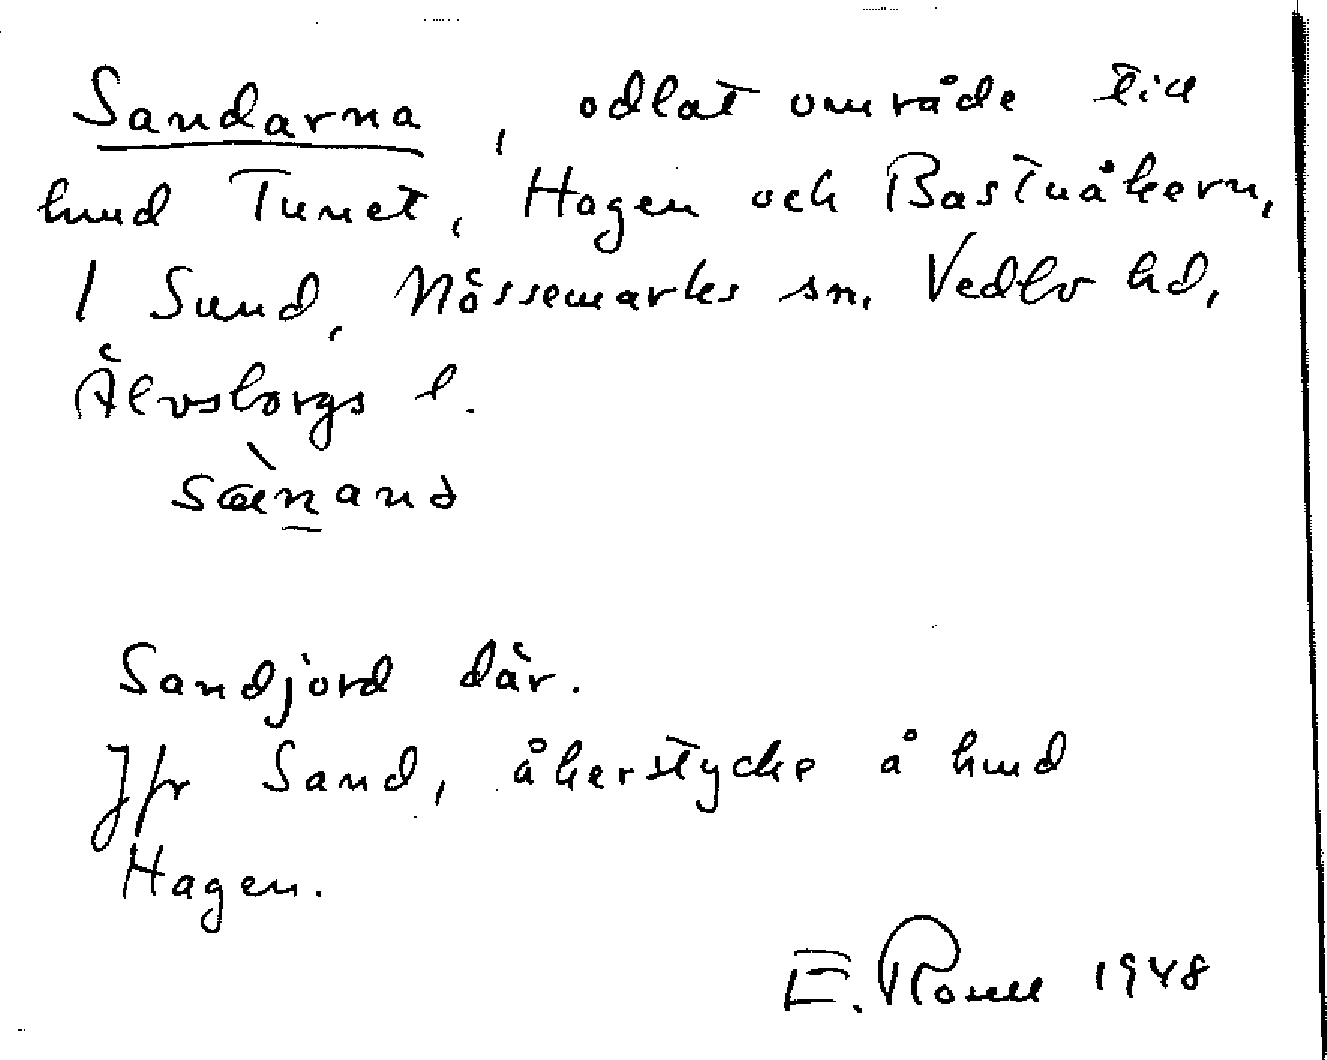 Sandarna, odlat område till
hmd Tunet, Hagen och Bastuåkern,
1 Sund, Nössemarks sn, Vedbo hd,
Älvsborgs l.
Sandjord där.
Jfr Sand, åkerstycke å hmd
Hagen.
E. Rosell 1948